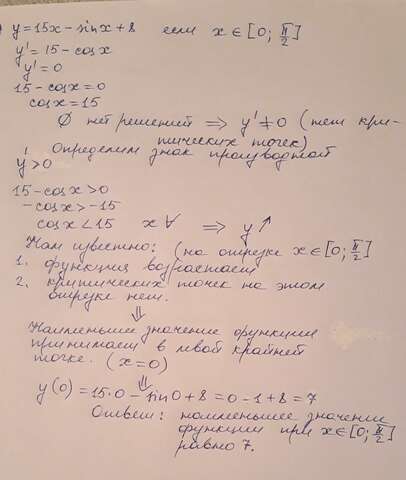 y = 15x - sinx + 8 если x ∈ [0; π/2]
y' = 15 - cosx
y' = 0
15 - cosx = 0
cosx = 15
∅ нет решений ⇒ y' ≠ 0 (нет кри-
тических точек)
Определим знак производной
y' > 0
15 - cosx > 0
- cosx > -15
cosx < 15 x ∀ ⇒ y ↑
Нам известно: (на отрезке x ∈ [0; π/2]
1. функция возрастает
2. критических точек на этом
отрезке нет.
⇓
Наименьшее значение функция
принимает в левой крайней
точке. (x = 0)
⇓
y(0) = 15·0 - sin0 + 8 = 0 - 1 + 8 = 7
Ответ: наименьшее значение
функции при x ∈ [0; π/2]
равно 7.